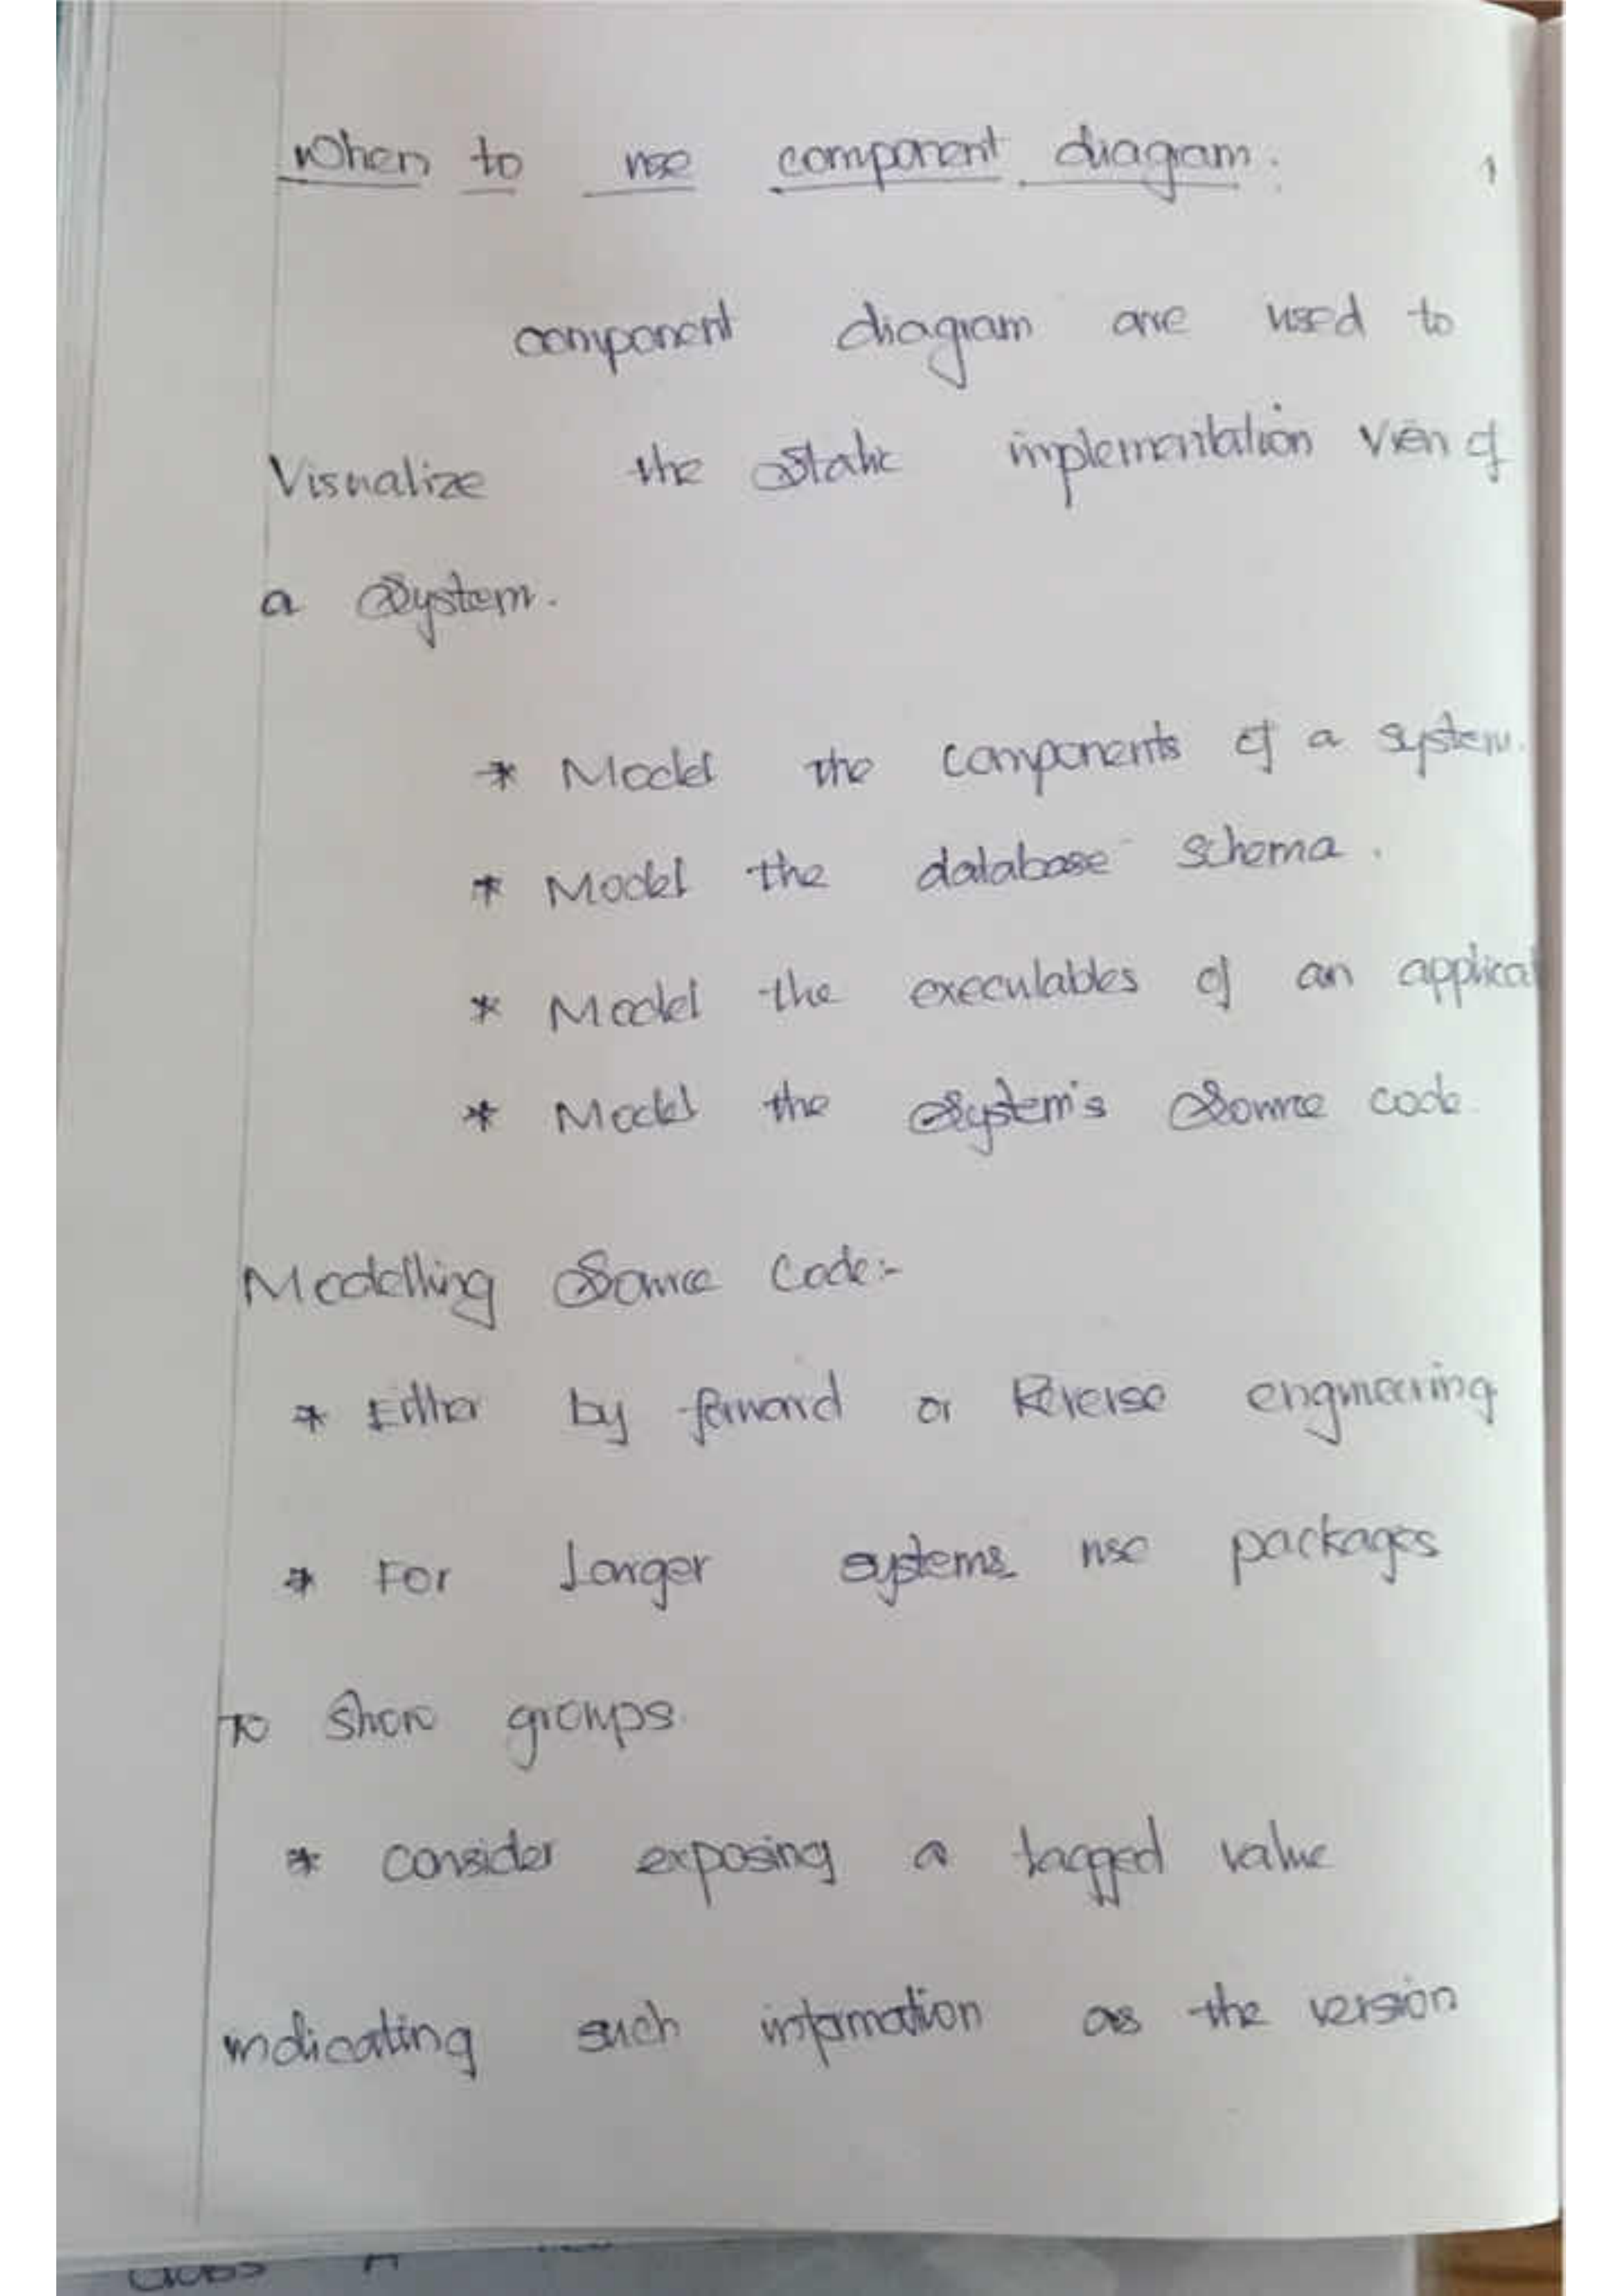 When to use component diagram:
component diagram are used to
Visualize the static implementation view of
a system.
* Model the components of a system.
* Model the database schema.
* Model the executables of an applicat
* Model the system's source code
Modelling Source Code:-
* Either by forward or Reverse engineering
* For larger systems use packages
To show groups.
* consider exposing a tagged value
indicating such information as the version